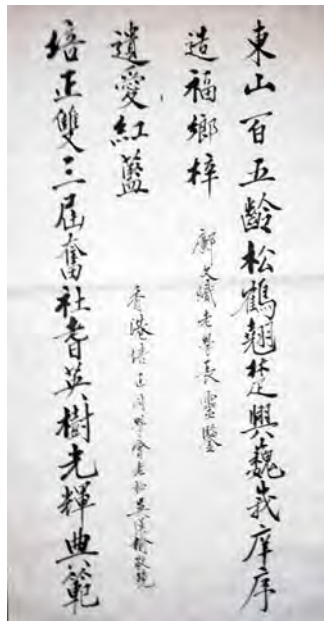 東山百五齡松鶴翹楚興巍峩庠序
造福鄉梓
鄺文熾老學長靈鑒
遺愛紅藍
香港培正同學會老松吳漢榆敬輓
培正雙三屆奮社耆英樹光輝典範